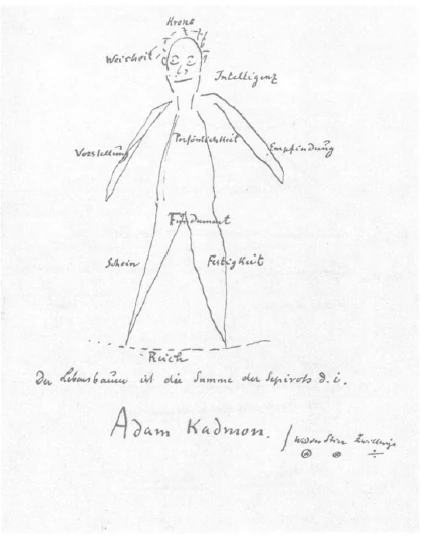 Krone
Weisheit
Intelligenz
Persönlichkeit
Vorstellung
Empfindung
Fundament
Schein
Festigkeit
Reich
Der Lebensbaum ist die Summe der Sepirots d. i.
Adam Kadmon.